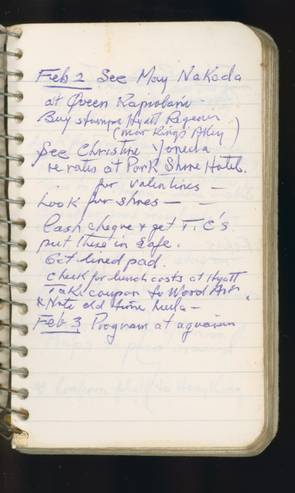 Feb 2 See May Nakada
at Queen Kapiolani
Buy stamps Hyatt Regency
(near Kings Alley)
See Christine Yoneda
re rates at Park Shore Hotel.
for Valentines —
Look for shoes —
Cash cheque & get T.C's
put these in safe.
Get lined pad.
Check for lunch costs at Hyatt
Take coupon to Word
& Note old time hula —
Feb 3 Program at aquarium